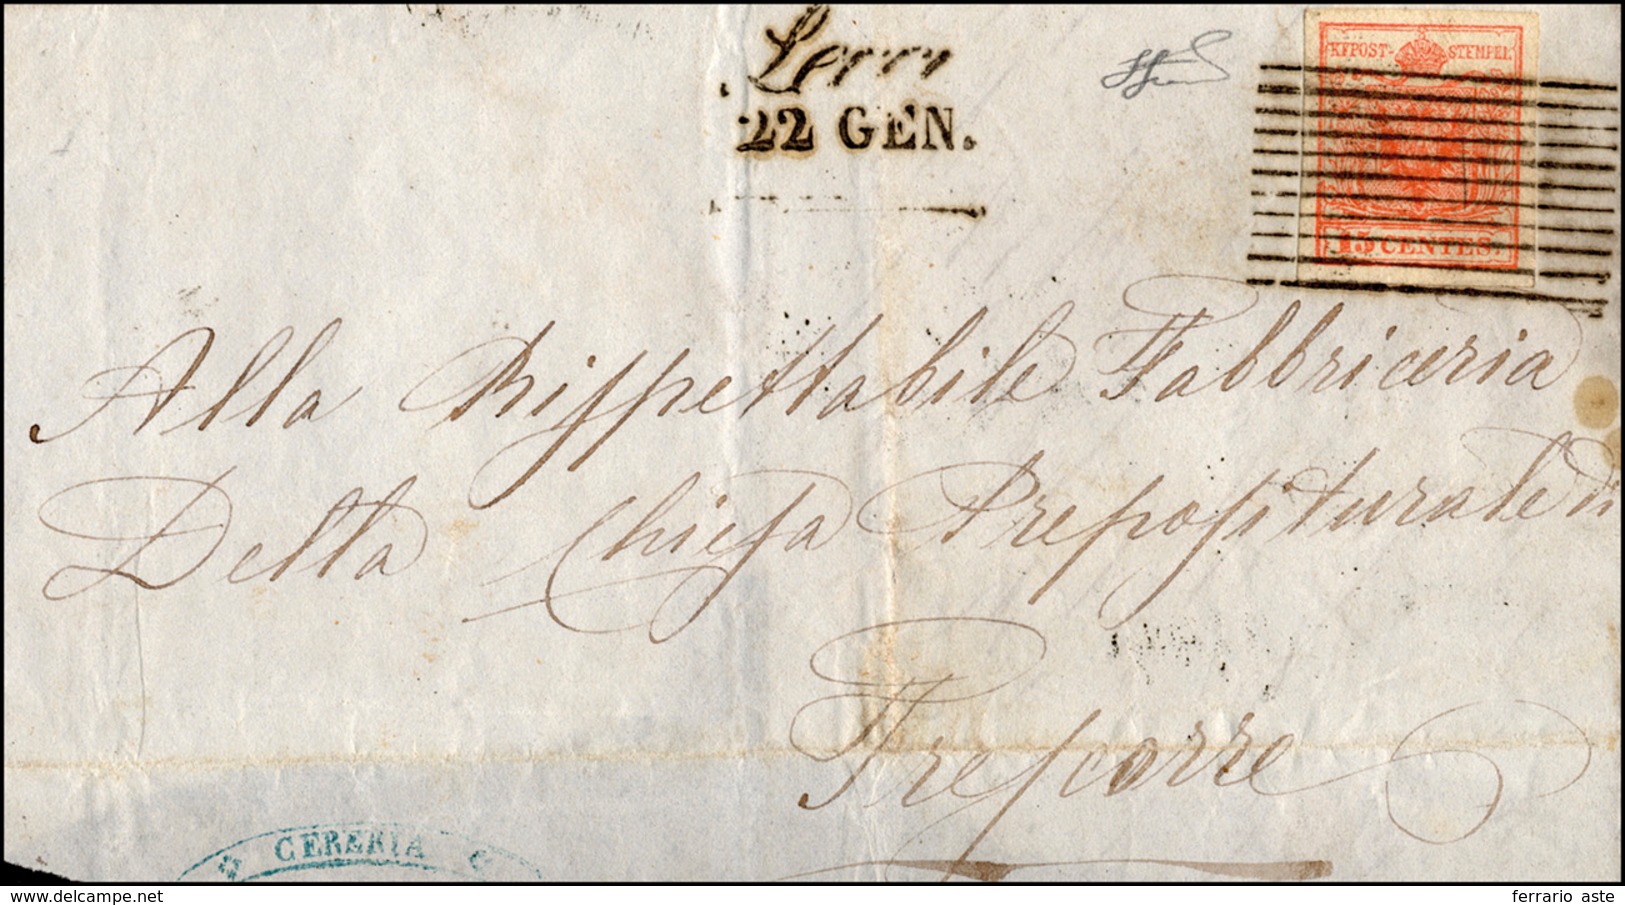 22 GEN.
KKPOST-STEMPEL
15 CENTES.
Alla Rispettabile Fabbriceria
Della Chiesa Prepositurale di
Trescorre
CERERIA
www.delcampe.net
ferrario aste